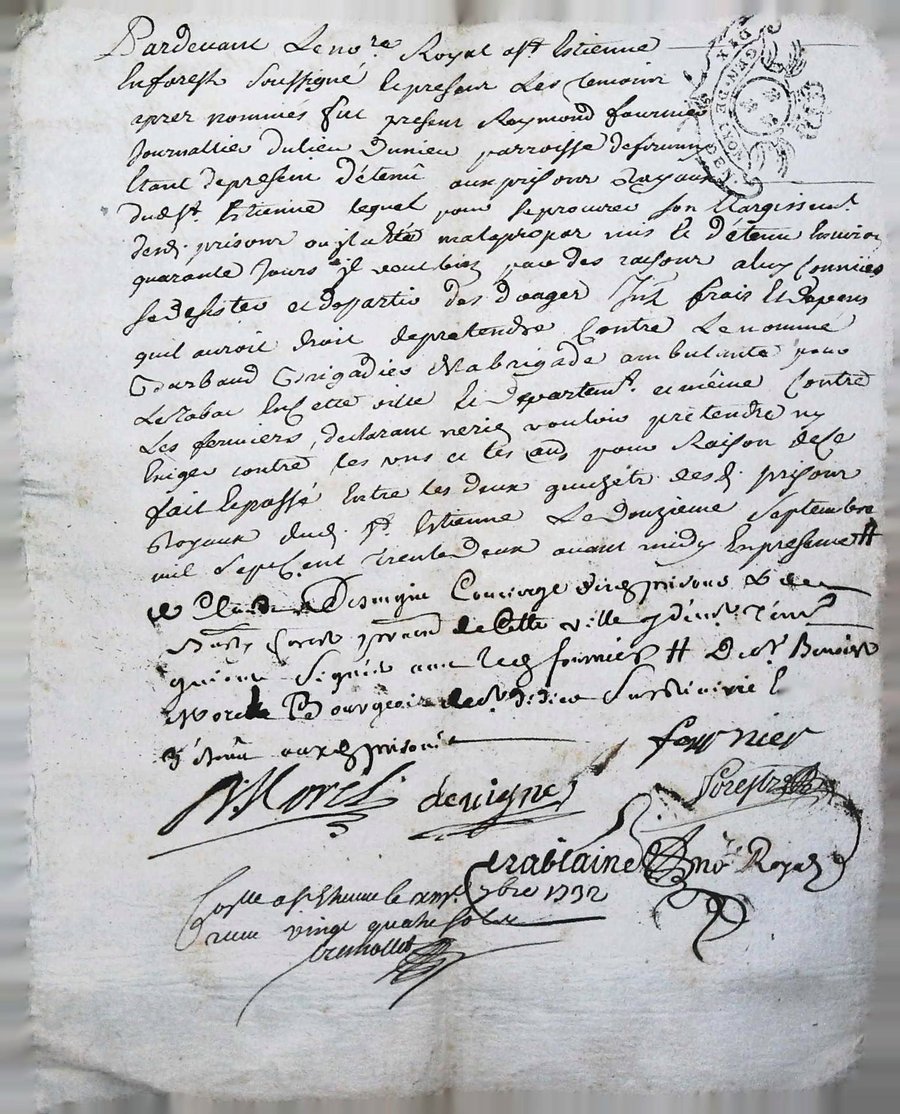 Pardevant Le no.re Royal a St Estienne
En forest Soussigné Et present Les temoins
apres nommés fut present Raymond fournier
Journallier du lieu parroisse de
Etant depresent détenû aux prisons Royaux
dud St. Estienne lequel pour se procurer son Elargissemt.
desd. prisons ou il a été mal apropos mis Et détenu Environ
quarante Jours il veut bien pour des raisons a luy Connües
se desister et departir des dommages Intz. frais Et depens
quil auroit droit depretendre Contre Le nommé
Garbaud Brigadier de la brigade ambulante pour
Le tabac En Cette ville Et Departemt. et même Contre
Les fermiers, declarant ne rien vouloir pretendre ny
Exiger contre les uns et les autres pour Raison de Ce
fait Et passé Entre les deux guichéts desd. prisons
Royaux dud. St. Estienne Le Douzieme Septembre
mil Sept Cent Trente Deux avant midy En presence #
de Claude Desvigne Concierge desd prisons & de
forest praticien de Cette ville
qui ont Signés avec led fournier # De Sr. Benoist
Morel Bourgeois de St. didier Sur
détenû auxd prisons
fournier
B. Morel devigne forest
trablaine no.re Royal
Con.lle a St Etienne le 7bre 1732
reçu vingt quatre sols
tremollet